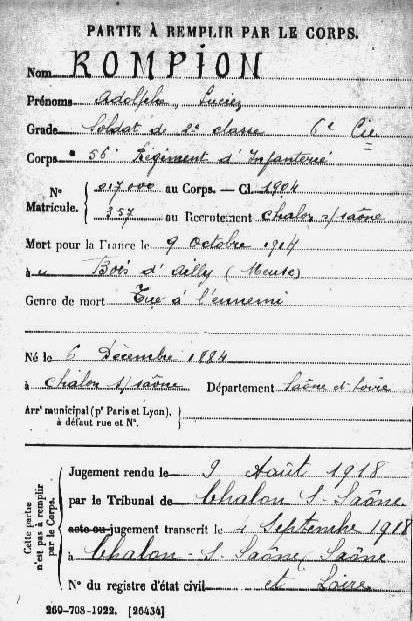 PARTIE À REMPLIR PAR LE CORPS.
Nom ROMPION
Prénoms Adolphe, Lucien
Grade Soldat de 2e classe 6e Cie
Corps 56 Régiment d'Infanterie
N° Matricule. { 017000 au Corps. — Cl. 1904
357 au Recrutement Chalon s/saône
Mort pour la France le 9 octobre 1914
à Bois d'Ailly (Meuse)
Genre de mort Tué à l'ennemi
Né le 6 Décembre 1884
à Chalon s/saône Département Saône et Loire
Arrt municipal (pr Paris et Lyon), à défaut rue et N°.
Cette partie n'est pas à remplir par le Corps.
Jugement rendu le 9 Août 1918
par le Tribunal de Chalon S-Saône
acte ou jugement transcrit le 1 Septembre 1918
à Chalon-S-Saône, Saône
N° du registre d'état civil et Loire
269-708-1922. [26434]